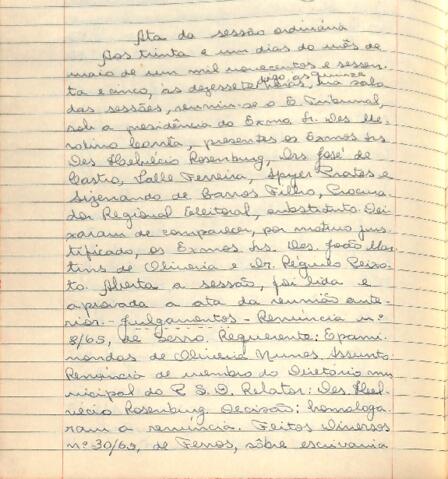 Ata da sessão ordinária
Aos trinta e um dias do mês de
maio de um mil novecentos e sessen-
ta e cinco, às dezessete horas, digo, às quinze
horas, na sala
das sessões, reuniu-se o E. Tribunal,
sob a presidência do Exmo Sr. Des. Me-
rolino Corrêa, presentes os Exmos Srs.
Des. Helvécio Rosenburg, Drs. José de
Castro, Valle Ferreira, Prates e
Sizenando de Barros Filho, Procura-
dor Regional Eleitoral, substituto. Dei-
xaram de comparecer, por motivo jus-
tificado, os Exmos. Srs. Des. João Mar-
tins de Oliveira e Dr. Régulo Peixo-
to. Aberta a sessão, foi lida e
aprovada a ata da reunião ante-
rior. - Julgamentos - Renúncia nº
8/65, de Serro. Requerente: Epami-
nondas de Oliveira Nunes. Assunto:
Renúncia de membro do Diretório mu-
nicipal do P. S. D. Relator: Des. Hel-
vécio Rosenburg. Decisão: homologa-
ram a renúncia. Feitos Diversos
nº 30/65, de Ferros, sôbre escrivania